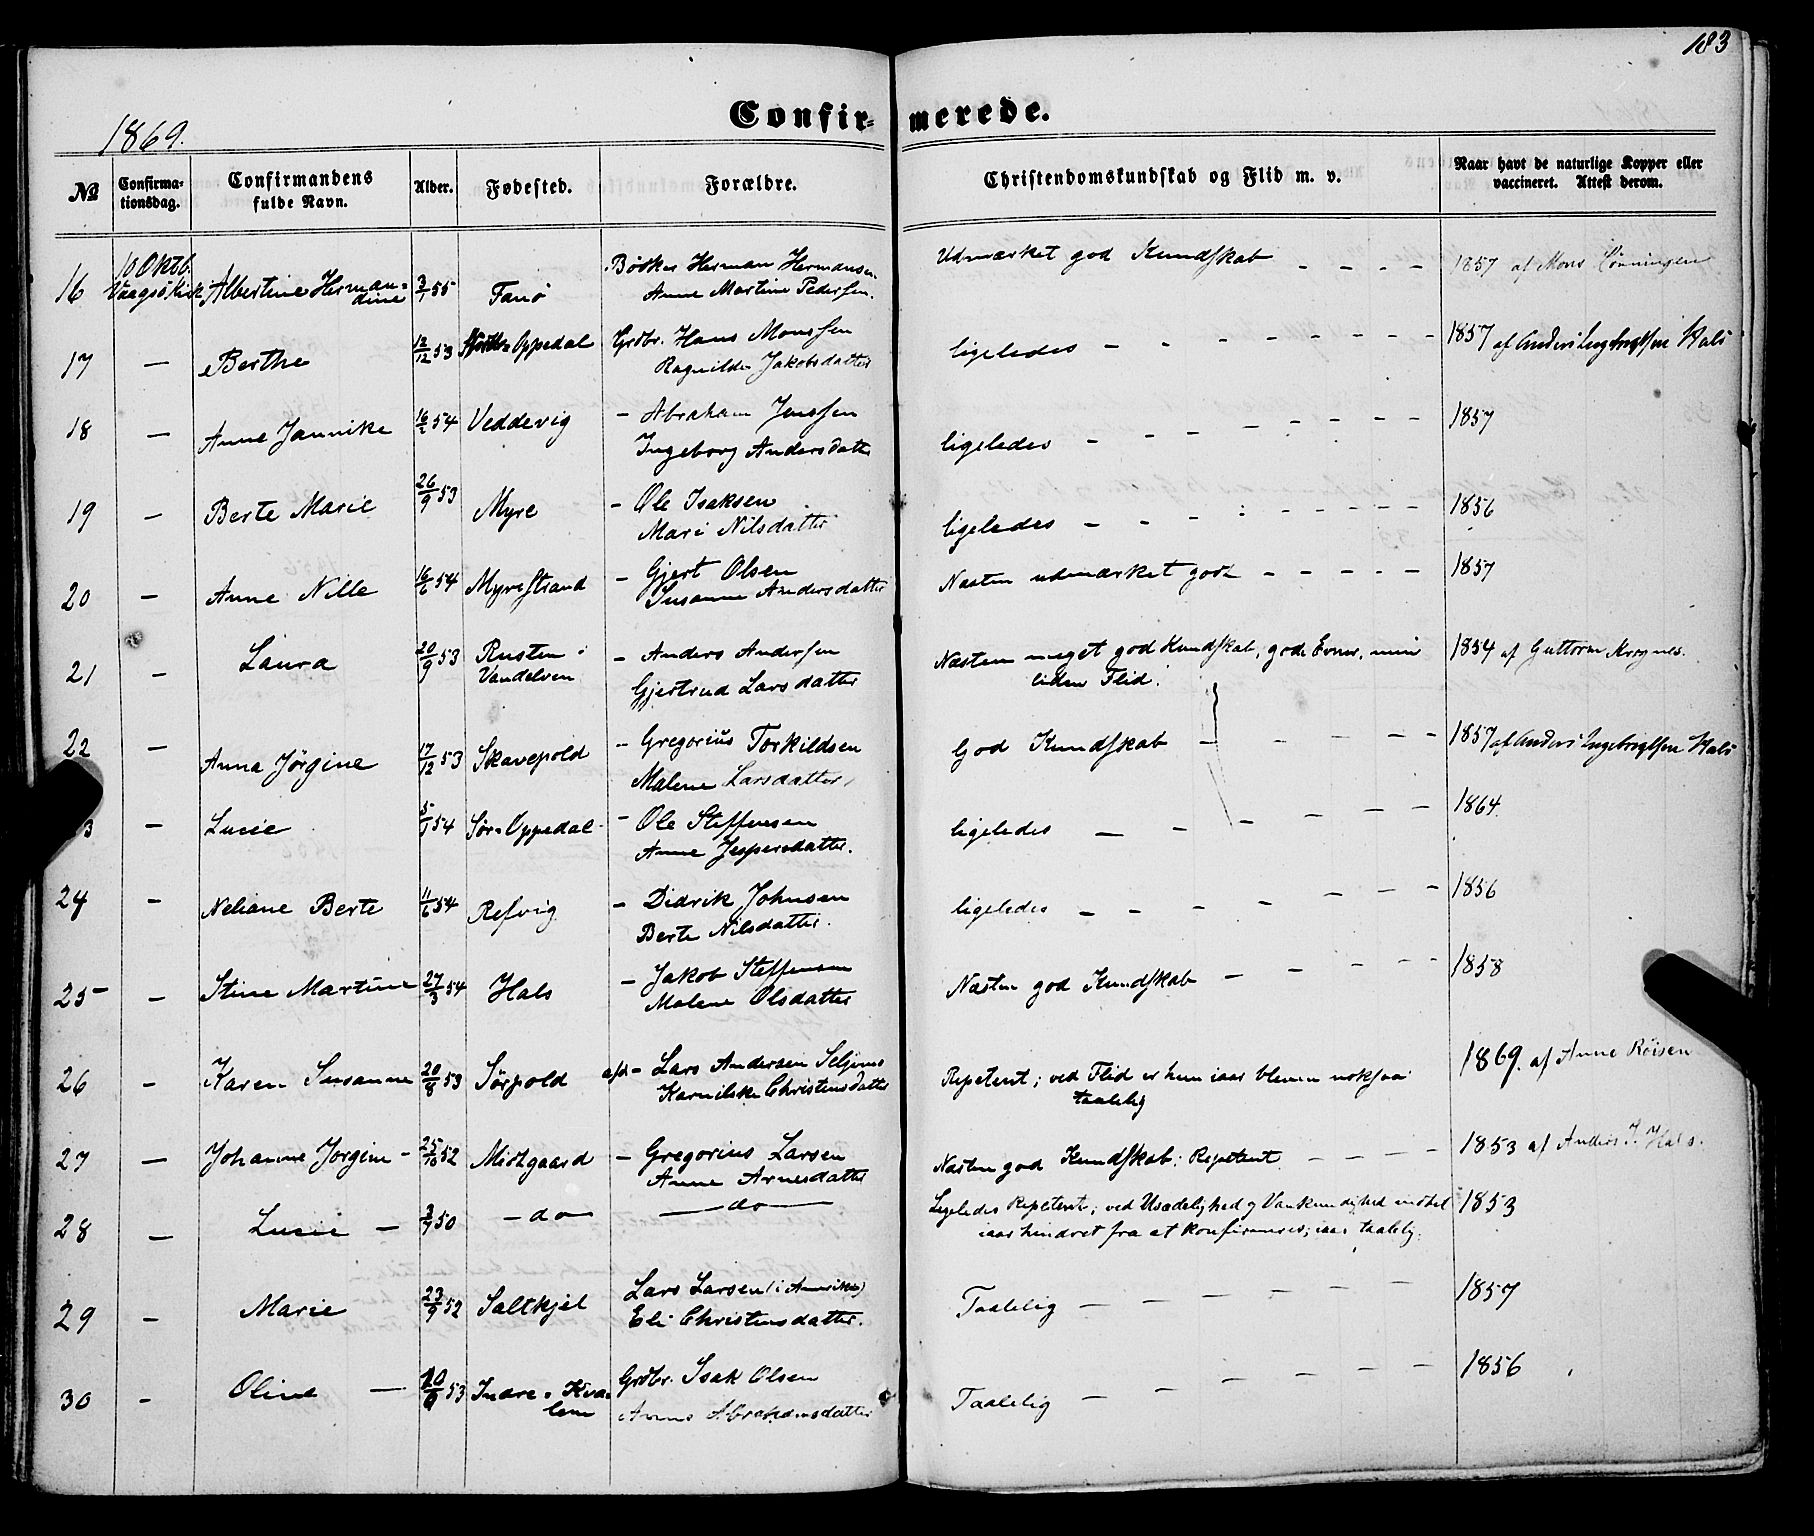 183
Confirmerede.
1869.
№ Confirma-tionsdag. Confirmandens fulde Navn. Alder. Fødested. Forældre. Christendomskundskab og Flid m. v. Naar havt de naturlige Kopper eller vaccineret. Attest derom.
10 Oktb. Bødker Herman Hermansen Udmærket god Kundskab - - - -
16 Vaagsø Kirk Albertine Herman-dine 3/1 55 Fanø Anne Martine Pedersen. 1857 af Mons Lønningen
17 — Berthe 12/12 53 Nordre Oppedal Grdbr. Hans Monssen ligeledes - - - - - - - - 1857 af Anders Ingebrigtsen Hals
Ragnilde Jakobsdatter
18 — Anne Jannike 16/2 54 Veddevig — Abraham Jenssen ligeledes - - - - - - - - 1857
Ingeborg Andersdatter
19 — Berte Marie 26/9 53 Myre — Ole Isaksen ligeledes - - - - - - - - 1856
Mari Nilsdatter
20 — Anne Nille 16/6 54 Myrestrand — Gjert Olsen Næsten udmærket god - - - - - 1857
Susanne Andersdatter
21 — Laura 20/9 53 Rusten i — Anders Andersen Næsten meget god Kundskab, gode Evner, men 1854 af Guttorm
Vandelven Gjertrud Larsdatter liden Flid.
22 — Anna Jørgine 17/12 53 Skavepold — Gregorius Torkildsen God Kundskab - - - - - 1857 af Anders Ingebrigtsen Hals
Malene Larsdatter
3 — Lucie 54 Sør-Oppedal — Ole Steffensen ligeledes - - - - - - 1864
Anne Jespersdatter.
24 — Neliane Berte 11/6 54 Refvig — Didrik Johnsen ligeledes - - - - - - - 1856
Berte Nilsdatter.
25 — Stine Martine 27/3 54 Hals — Jakob Steffensen Næsten god Kundskab - - - - - 1858
Malene Olsdatter
26 — Karen Susanne 20/8 53 Sørpold afd — Lars Andersen Seljenes Repetent; ved Flid er hun iaar bleven noksaa 1869. af Anne Röisen
Karnilske Christensdatter taalelig
27 — Johanne Jorgine — 25/10 52 Midtgaard — Gregorius Larsen Næsten god Kundskab; Repetent. - - - - 1853 af Anders I. Hals.
Anne Arnesdatter
28 — Lucie — 50 — do — — do — Ligeledes Repetent; ved Usædelighed og Vankundighed indtil 1853
iaar hindret fra at konfirmeres; iaar taalelig.
29 — Marie 23/9 52 Saltkjel Lars Larsen (i Amerika) Taalelig - - - - - - 1857
Eli Christensdatter.
30 — Oline — 53 Indre-Kva-lem Grdbr. Isak Olsen Taalelig - - - - - - 1856
Anne Abrahamsdatter